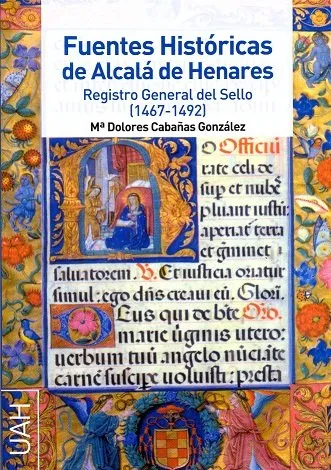 Fuentes Históricas
de Alcalá de Henares
Registro General del Sello
(1467-1492)
Mª Dolores Cabañas González
O Officiū
rate celi de
sup et nubes
pluant iustū:
aperiat terra
et gminet
saluatorem. Et iusticia oriatur
simul: ego dn̄s creaui eū. Glori.
Deus qui de bte Oro.
marie uirginis utero:
uerbum tuū angelo nūciāte
carnē suscipe uoluisti: presta:
UAH